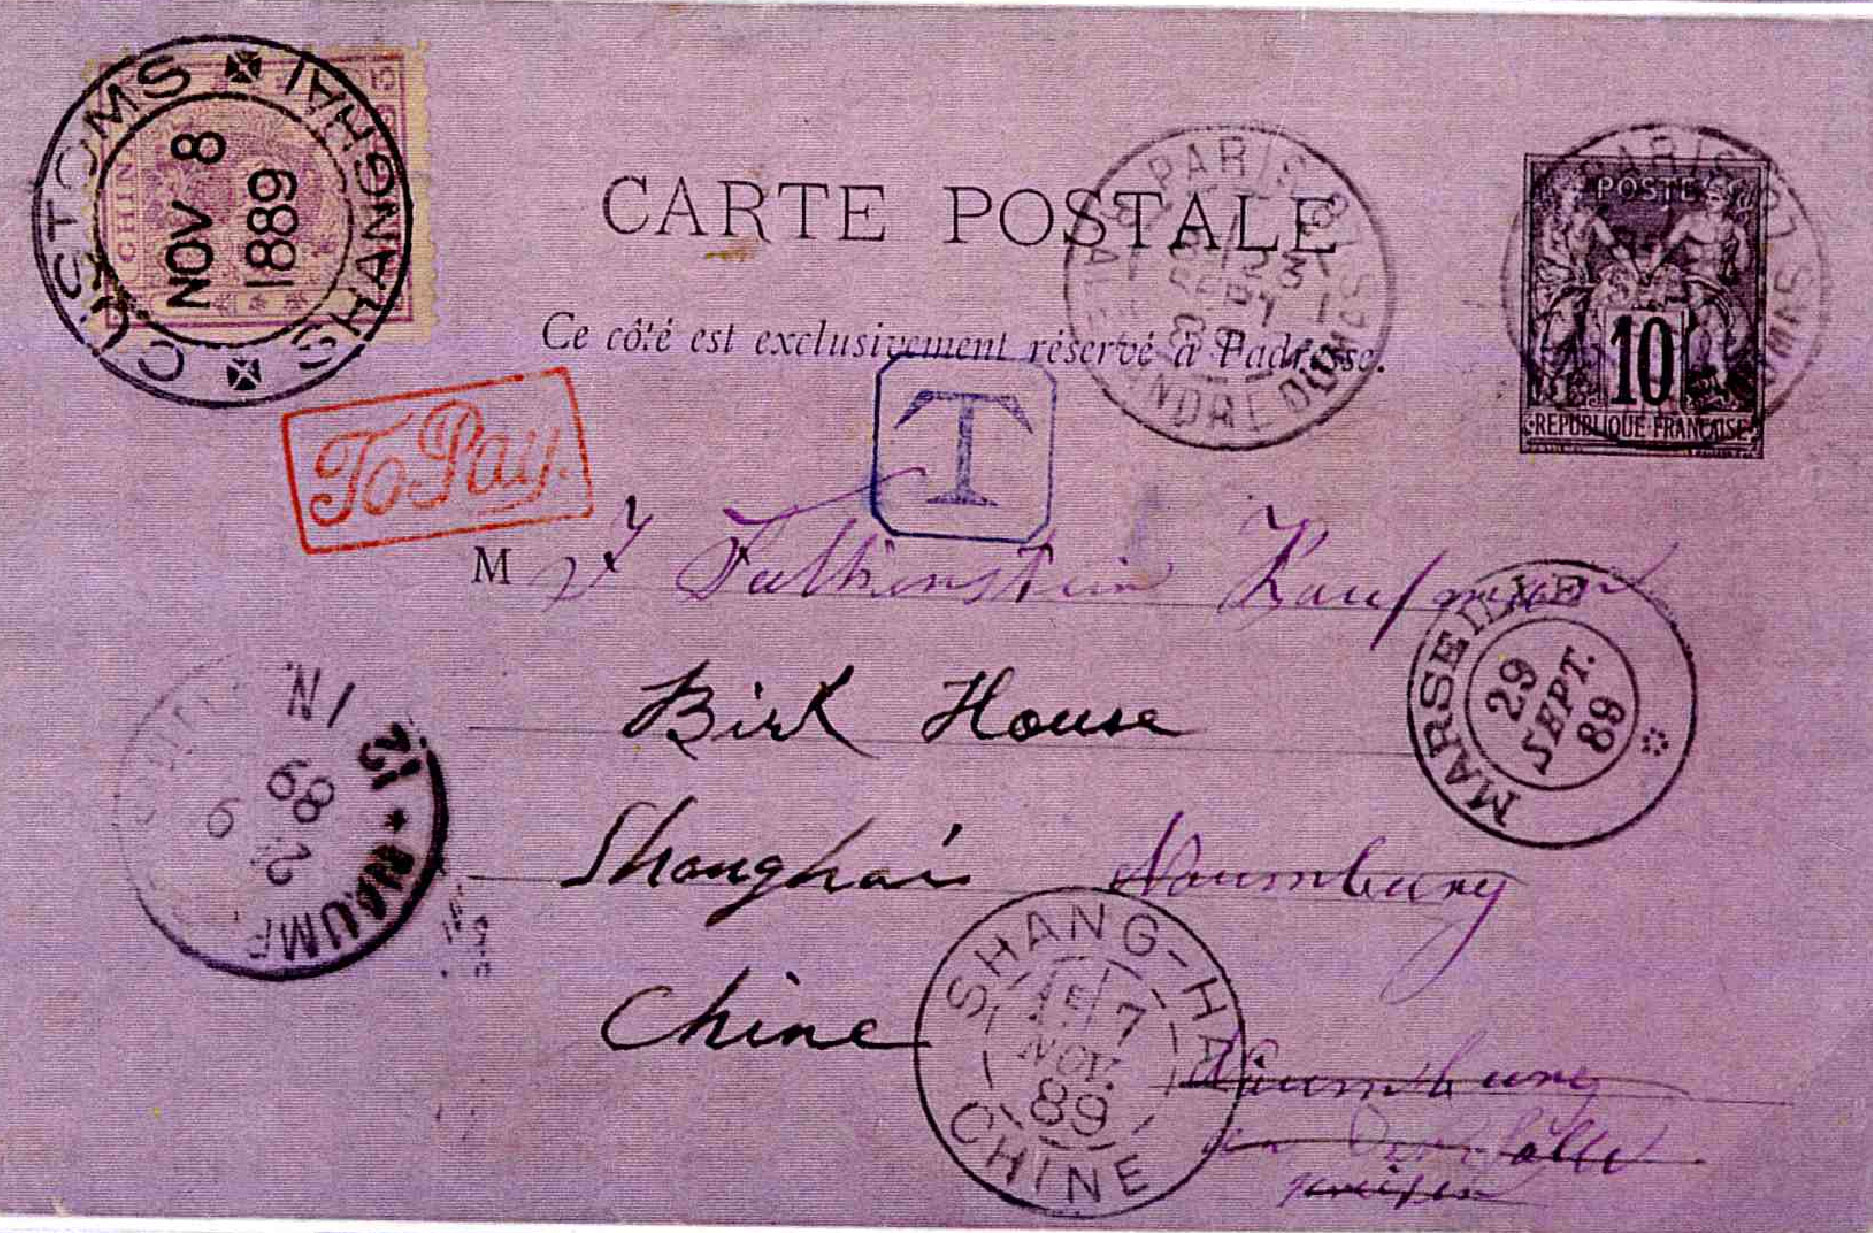 CUSTOMS SHANGHAI
NOV 8
1889
CHIN
CARTE POSTALE
Ce côté est exclusivement réservé à l'adresse.
PARIS
23
SEPT
89
POSTES
10
REPUBLIQUE FRANÇAISE
To Pay.
T
M
Falkenstein Kaufmann
MARSEILLE
29
SEPT.
89
House
Shanghai Naumburg
Chine
NAUMB
12
89
9
IN
SHANG-HAI
7
NOV.
89
CHINE
Naumburg